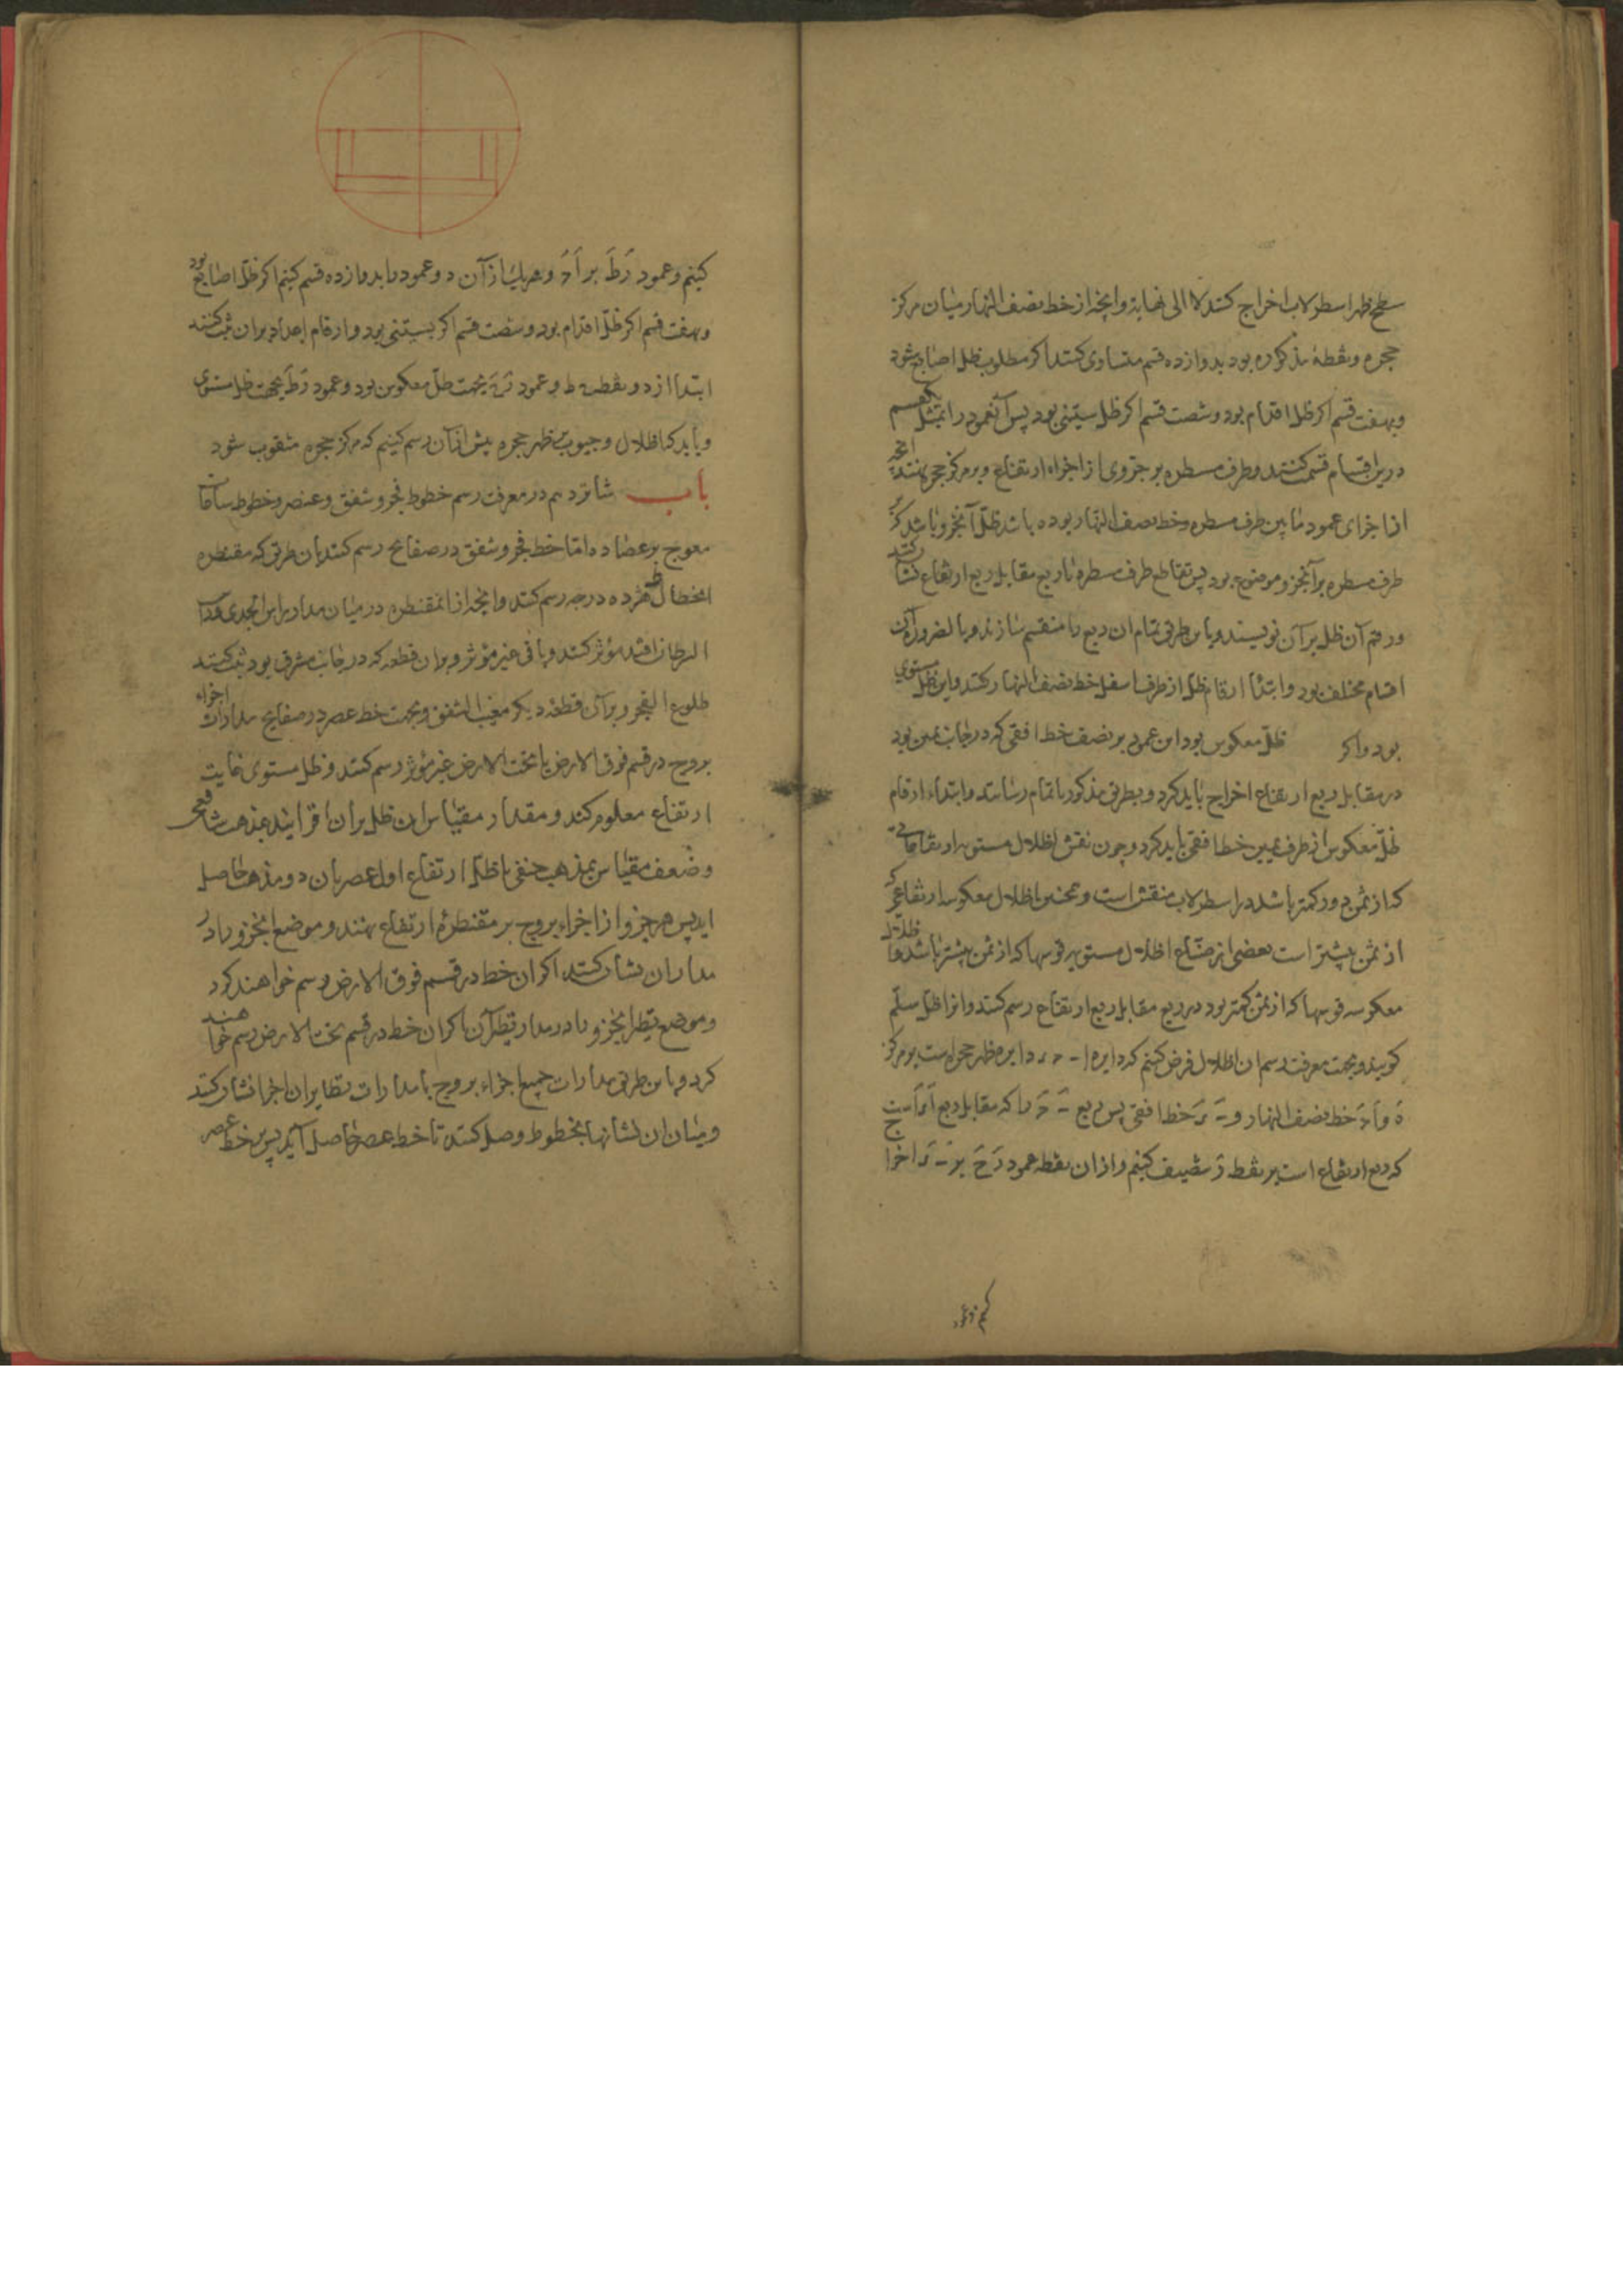 سطح ظهر اسطرلاب اخراج کنند لا الی نهایة وانچه از خط نصف النهار میان مرکز
حجره و نقطهٔ مذکوره بود بدوازده قسم متساوی کنند اکر مطلوب ظل اصابع شود
وبهفت قسم اکر ظل اقدام بود و شصت قسم اکر ظل ستینی بود پس آنعمود را بمثل
درین اقسام قسمت کنند وطرف مسطره بر جزوی از اجزاء ارتفاع وبر مرکز حجره نهند
از اجزای عمود مابین طرف مسطره وخط نصف النهار بوده باشد ظل آنجزو باشد که
طرف مسطره بر آنجزو موضوع بود پس تقاطع طرف مسطره با ربع مقابل ربع ارتفاع نشان کنند
ورقم آن ظل بر آن نویسند وباین طریق تمام ان ربع را منقسم سازند وبالضروره آن
اقسام مختلف بود وابتداء ارقام ظل از طرف اسفل خط نصف النهار کنند واین ظل مستوی
بود واکر ظل معکوس بود این عمود بر نصف خط افقی که در جانب یمین بود
در مقابل ربع ارتفاع اخراج باید کرد وبطریق مذکور باتمام رسانند وابتداء ارقام
ظل معکوس از طرف یمین خط افقی باید کرد وچون نقش اظلال مستویه ارتفاعاتی
که از ثمن دور کمتر باشد در اسطرلاب منقش است وهمچنین اظلال معکوسه ارتفاعی که
از ثمن بیشتر است بعضی از صناع اظلال مستویه قوسها که از ثمن بیشتر باشد واظلال
معکوسه قوسها که از ثمن کمتر بود در ربع مقابل ربع ارتفاع رسم کنند وانرا ظل سلّم
کویند وبجهت معرفت رسم ان اظلال فرض کنیم که دایره ا ب ح د دایره ظهر حجره است بر مرکز
ه و اح خط نصف النهار و ب د خط افقی پس ربع ب ح را که مقابل ربع
که ربع ارتفاع است بر نقطه ز تنصیف کنیم واز ان نقطه عمود زح بر ب د اخراج
کنیم وعمود
کنیم وعمود زط بر اح وهریک از آن دو عمود را بدوازده قسم کنیم اکر ظل اصابع بود
وبهفت قسم اکر ظل اقدام بود وشصت قسم اکر ستینی بود وارقام اعداد بران ثبت کنند
ابتدا از دو نقطه ح ط وعمود زح بجهت ظل معکوس بود وعمود زط بجهت ظل مستوی
وباید که اظلال وجیوب بر ظهر حجره پیش از آن رسم کنیم که مرکز حجره مثقوب شود
باب شانزدهم در معرفت رسم خطوط فجر وشفق وعصر وخطوط ساعات
معوج بر عضاده اما خط فجر وشفق در صفایح رسم کنند بان طریق که مقنطره
انحطاط هژده درجه رسم کنند وانچه از انمقنطره در میان مدار راس الجدی ومدار
السرطان افتد مؤثر کنند وباقی غیر مؤثر وبران قطعه که در جانب مشرق بود ثبت کنند
طلوع الفجر وبر آن قطعه دیکر مغیب الشفق وبجهت خط عصر در صفایح مدارات اجزاء
بروج در قسم فوق الارض یا تحت الارض غیر مؤثر رسم کنند وظل مستوی غایت
ارتفاع معلوم کنند ومقدار مقیاس ان ظل بران افزایند بمذهب شافعی
وضعف مقیاس بمذهب حنفی تا ظل ارتفاع اول عصر بان دو مذهب حاصل
اید پس هر جزو از اجزاء بروج بر مقنطرهٔ ارتفاع نهند وموضع انجزو را در
مدار ان نشان کنند اکر ان خط در قسم فوق الارض رسم خواهند کرد
وموضع نظیر انجزو را در مدار نظیر آن اکر ان خط در قسم تحت الارض رسم خواهند
کرد وباین طریق مدارات جمیع اجزاء بروج با مدارات نظایر ان اجزا نشان کنند
ومیان ان نشانها بخطوط وصل کنند تا خط عصر حاصل آید پس خط عصر